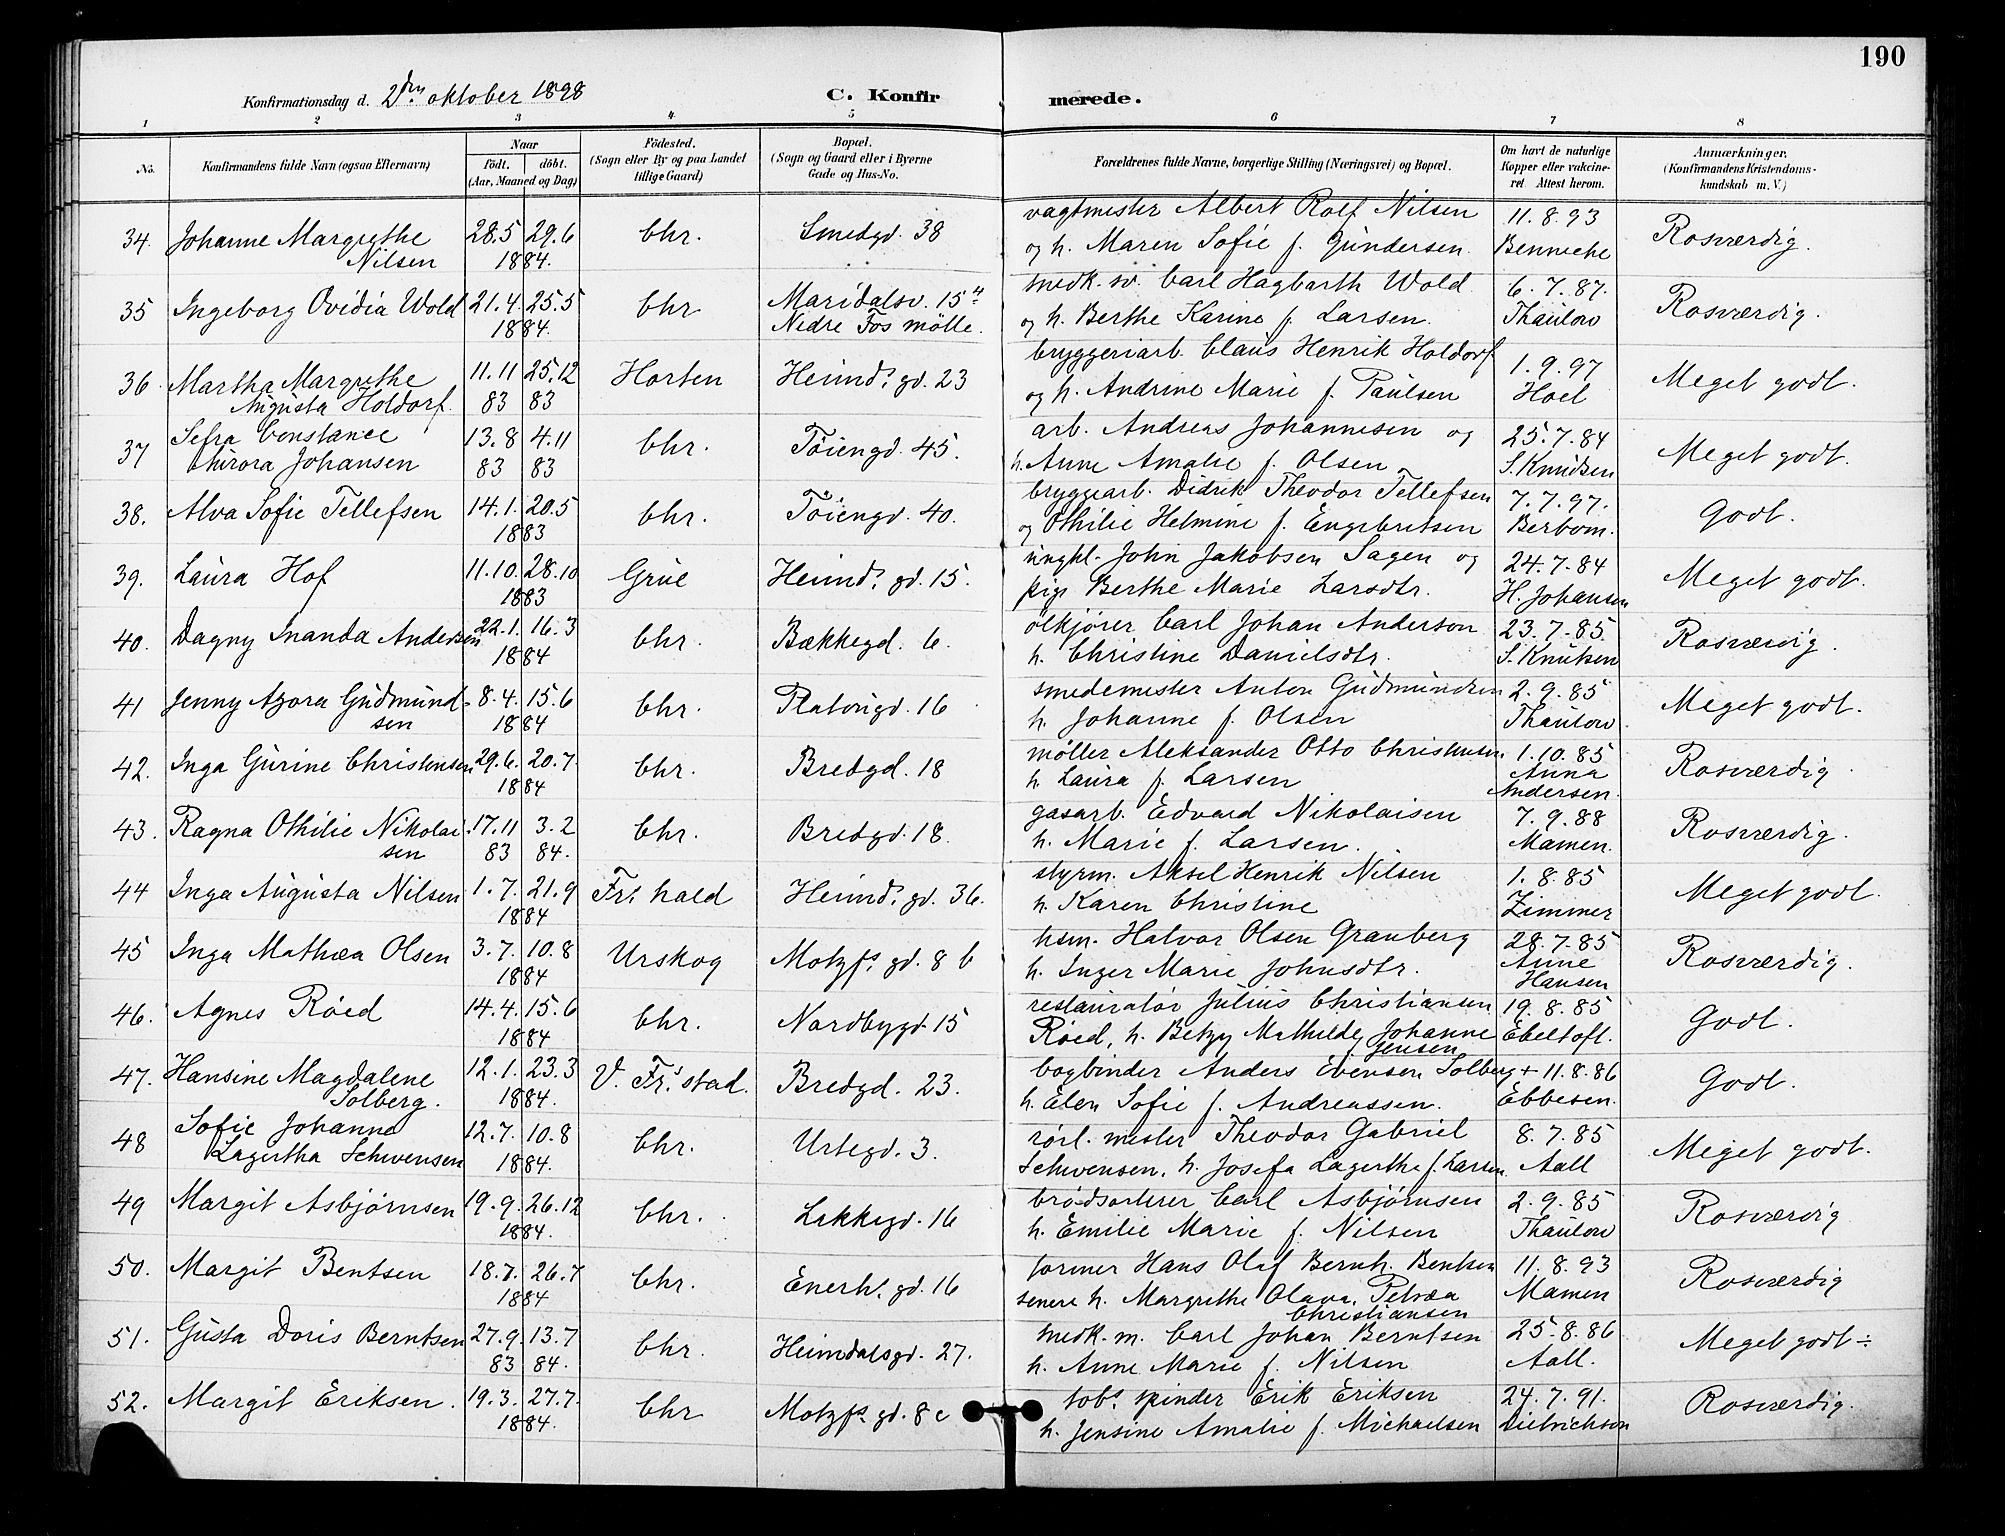 190
Konfirmationsdag d. 2den oktober 1898
C. Konfirmerede.
1 2 3 4 5 6 7 8
No. Konfirmandens fulde Navn (ogsaa Efternavn) Naar født. døbt. (Aar, Maaned og Dag) Födested. (Sogn eller By og paa Landet tillige Gaard) Bopæl. (Sogn og Gaard eller i Byerne Gade og Hus-No. Forældrenes fulde Navne, borgerlige Stilling (Næringsvei) og Bopæl. Om havt de naturlige Kopper eller vakcineret. Attest herom. Anmærkninger. (Konfirmandens Kristendomskundskab m. V.)
34. Johanne Margrethe 28.5 29.6 Chr. Smedgd. 38 vagtmester Albert Rolf Nilsen 11.8.93 Rosværdig.
Nilsen 1884. og h. Maren Sofie f. Gundersen. Benneche
35 Ingeborg Ovidia Wold 21.4. 25.5 Chr Maridalsv. 15 snedk. sv. Carl Hagbarth Wold 6.7.87. Rosværdig.
1884. Nedre Fos mölle. og h. Berthe Karine f. Larsen. Thaulow
36 Martha Margrethe 11.11 25.12 Horten Heimd. gd. 23 bryggeriarb. Claus Henrik Holdorf 1.9.97 Meget godt.
Augusta Holdorf. 83 83 og h. Andrine Marie f. Paulsen Hoel
37 Sefra Constance 13.8 4.11 Chr. Töiengd. 45. arb. Andreas Johannesen og 25.7.84 Meget godt.
Aurora Johansen 83 83 h. Anne Amalie f. Olsen S. Knudsen
38. Alva Sofie Tellefsen 14.1. 20.5 Chr. Töiengd. 40. bryggearb. Didrik Theodor Tellefsen 7.7.97. Godt.
1883 og Othilie Helmine f. Engebretsen Berbom.
39. Laura Hof 11.10. 28.10 Grue Heimd. gd. 15. ungkl. John Jakobsen Sagen og 24.7.84 Meget godt.
1883 pige Berthe Marie Larsdtr. H. Johansen
40. Dagny Inanda Andersen 22.1. 16.3 Chr. Bækkegd. 6. ölkjörer Carl Johan Anderson 23.7.85. Rosværdig.
1884 h. Christine Danielsdtr. S. Knutsen
41 Jenny Azora Gudmund- 8.4. 15.6 Chr. Platougd. 16 smedemester Anton Gudmundsen 2.9.85 Meget godt.
sen 1884 h. Johanne f. Olsen Thaulow.
42. Inga Gurine Christensen 29.6. 20.7. Chr. Bredgd. 18 möller Aleksander Otto Christensen 1.10.85 Rosværdig.
1884 h. Laura f. Larsen Anna Andersen.
43. Ragna Othilie Nikolai- 17.11 3.2 Chr. Bredgd. 18. gasarb. Edvard Nikolaisen 7.9.88 Rosværdig.
sen 83 84. h. Marie f. Larsen. Mamen.
44 Inga Augusta Nilsen 1.7. 21.9 Fr. hald Heimd. gd. 36. styrm. Aksel Henrik Nilsen 1.8.85 Meget godt.
1884 h. Karen Christine Zimmer
45 Inga Mathæa Olsen 3.7. 10.8 Urskog Motzfs. gd. 8 b hsm. Halvor Olsen Granberg 28.7.85 Rosværdig.
1884 h. Inger Marie Johnsdtr. Anne Hansen
46. Agnes Röed 14.4. 15.6 Chr. Nordbygd. 15 restauratør Julius Christiansen 19.8.85 Godt.
1884 Röed, h. Betzy Mathilde Johanne Jensen Ebeltoft.
47. Hansine Magdalene 12.1. 23.3 V. Fr. stad. Bredgd. 23. bogbinder Anders Evensen Solberg + 11.8.86 Godt.
Solberg. 1884. h. Elen Sofie f. Andreassen. Ebbesen.
48 Sofie Johanne 12.7. 10.8 Chr. Urtegd. 3. rørl. mester Theodor Gabriel 8.7.85 Meget godt.
Lagertha Schwensen 1884. Schwensen, h. Josefa Lagerthe f. Larsen Aall
49 Margit Asbjørnsen 19.9. 26.12 Chr. Lakkegd. 16 brødsorterer Carl Asbjørnsen 2.9.85 Rosværdig
1884. h. Emilie Marie f. Nilsen Thaulow
50. Margit Bentsen 18.7. 26.7 Chr. Enerh. gd. 16 former Hans Olaf Bernh. Bentsen 11.8.93 Rosværdig
1884 senere h. Margrethe Olava Petræa Christiansen Mamen
51. Gusta Doris Berntsen 27.9. 13.7 Chr. Heimdalsgd. 27. snedk. m. Carl Johan Berntsen 25.8.86 Meget godt ÷
83 84. h. Anne Marie f. Nilsen Aall.
52. Margit Eriksen. 19.3. 27.7. Chr Motzfs. gd. 8 c tobs. spinder Erik Eriksen 24.7.91. Rosværdig.
1884. h. Jensine Amalie f. Michaelsen Dietrichson